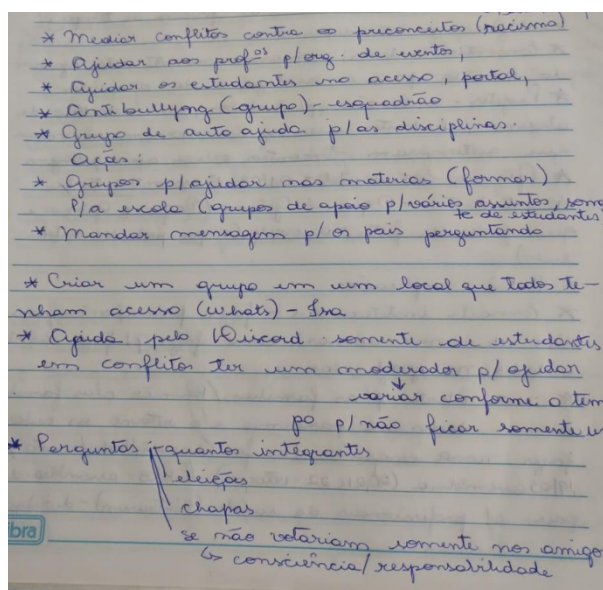 * Mediar conflitos contra os preconceitos (racismo)
* Ajudar aos profos p/ org. de eventos,
* Ajudar os estudantes no acesso, portal,
* Antibullyong (grupo) - esquadrão
* Grupo de auto ajuda p/ as disciplinas.
Ação:
* Grupos p/ ajudar nas materias (formar)
P/ a escola (grupos de apoio p/ vários assuntos, somen
te de estudantes
* Mandar mensagem p/ os pais perguntando
* Criar um grupo em um local que todos te-
nham acesso (whats) - Isa
* Ajuda pelo Discord somente de estudantes
em conflitos ter um moderador p/ ajudar
↓
variar conforme o tem
po p/ não ficar somente u
* Perguntas quantos integrantes
eleições
chapas
se não votariam somente nos amigo
↳ consciência/responsabilidade
bra